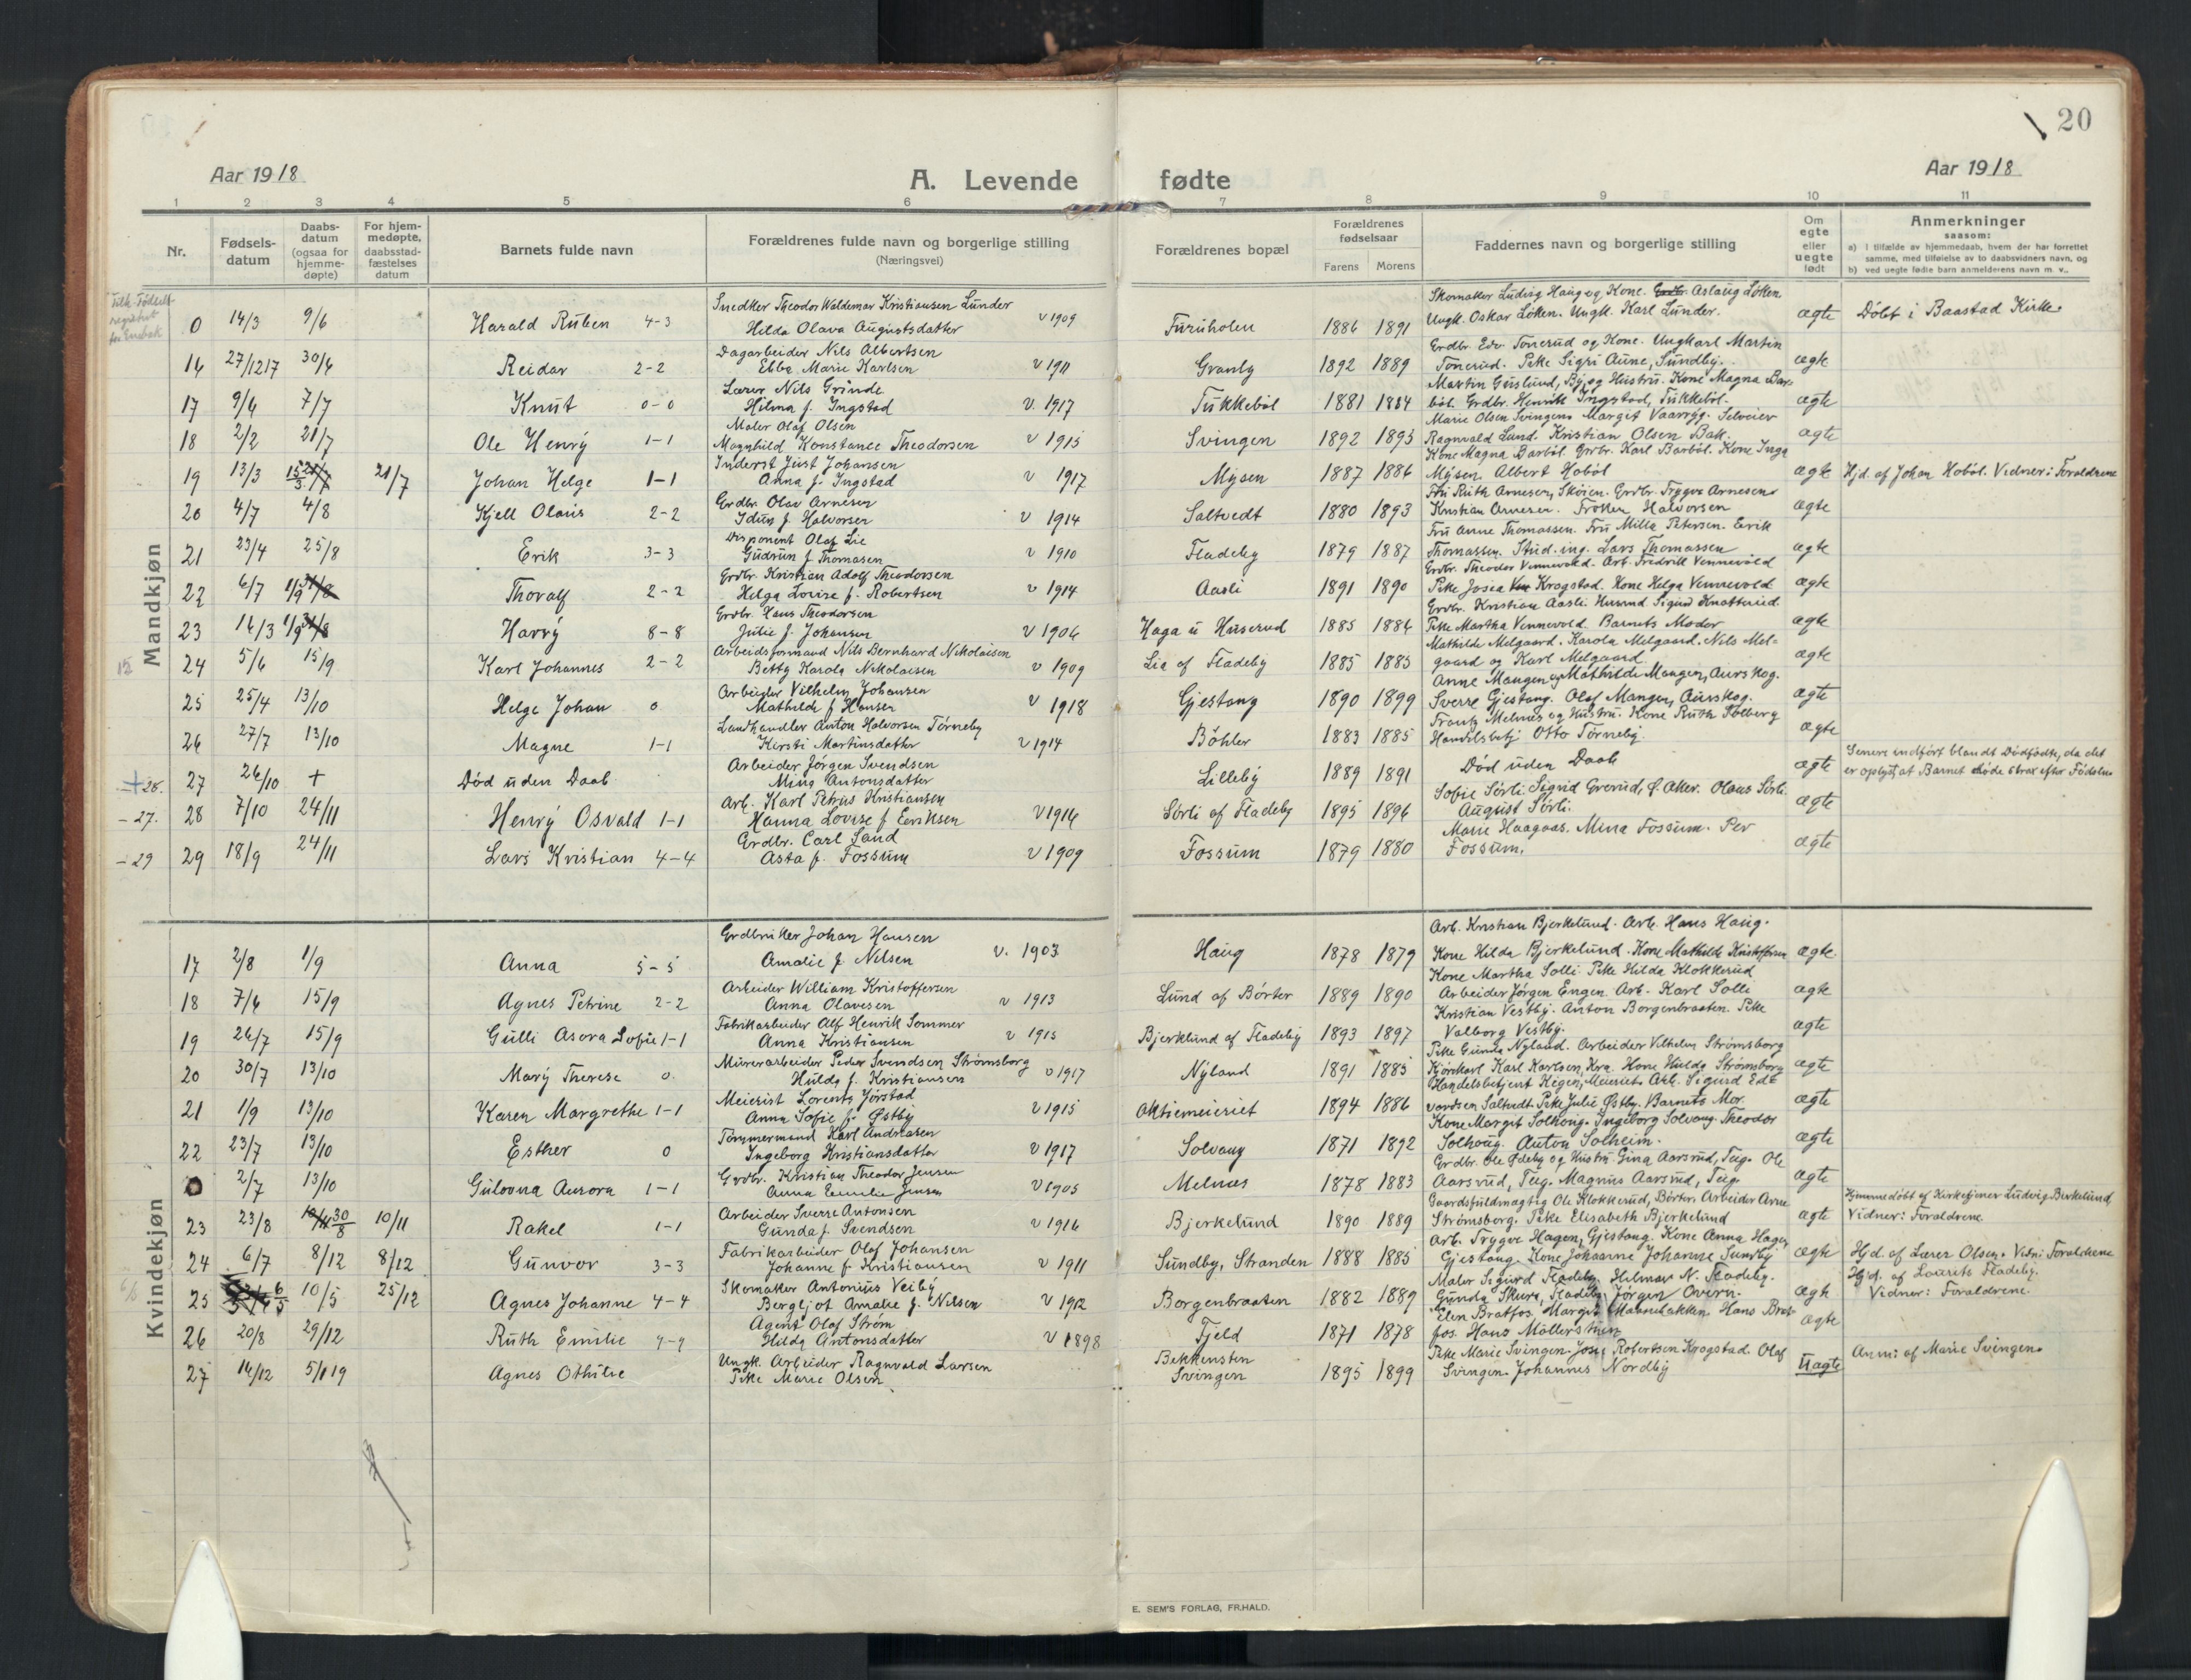 20
Aar 1918
A. Levende fødte
Aar 1918
1 2 3 4 5 6 7 8 9 10 11
Nr.
Fødsels-
datum
Daabs-
datum
(ogsaa for
hjemme-
døpte)
For hjem-
medøpte,
daabsstad-
fæstelses
datum
Barnets fulde navn
Forældrenes fulde navn og borgerlige stilling
(Næringsvei)
Forældrenes bopæl
Forældrenes
fødselsaar
Farens Morens
Faddernes navn og borgerlige stilling
Om
egte
eller
uegte
født
Anmerkninger
saasom:
a) i tilfælde av hjemmedaab, hvem der har forrettet
samme, med tilføielse av to daabsvidners navn, og
b) ved uegte fødte barn anmelderens navn m. v..
Mandkjøn
0 14/3 9/6 Harald Ruben 4-3 Snedker Theodor Waldemar Kristiansen Lunder
Hilda Olava Augustsdatter v 1909 Furuholen 1886 1891 Skomaker Ludvig Haug og Kone. Aslaug Løken
Ungk. Oskar Løken. Ungk. Karl Lunder. ægte Døbt i Baastad Kirke
16 27/12 17 30/6 Reidar 2-2 Dagarbeider Nils Albertsen
Ebba Marie Karlsen v 1911 Granby 1892 1889 Grdbr. Edv. Tonerud og Kone. Ungkarl Martin
Tonerud. Pike Sigri Aune, Sundby. ægte
17 9/6 7/7 Knut 0-0 Lærer Nils Grinde
Hilma f. Ingstad v. 1917 Tukkebøl 1881 1884 Martin Guslund, By og Hustru. Kone Magna Bar-
bøl. Grdbr. Henrik Ingstad, Tukkebøl. ægte
18 2/2 21/7 Ole Henry 1-1 Maler Olaf Olsen
Magnhild Konstance Theodorsen v 1915 Svingen 1892 1893 Marie Olsen Svingen. Margit Vaarryg. Selveier
Ragnvald Lund. Kristian Olsen Bak. ægte
19 13/3 15/3 21/7 Johan Helge 1-1 Inderst Just Johansen
Anna f. Ingstad v 1917 Mysen 1887 1886 Kone Magna Barbøl. Grdbr. Karl Barbøl. Kone Inga
Mysen. Albert Hobøl ægte Hjd. af Johan Hobøl. Vidner: Forældrene
20 4/7 4/8 Kjell Olaus 2-2 Grdbr. Olav Arnesen
Idun f. Halvorsen v 1914 Saltvedt 1880 1893 Fru Ruth Arnesen, Skøien. Grdbr. Trygve Arnesen
Kristian Arnesen. Frøken Halvorsen ægte
21 23/4 25/8 Erik 3-3 Disponent Olaf Lie
Gudrun f. Thomasen v 1910 Fladeby 1879 1887 Fru Anne Thomassen. Fru Milla Petersen. Eerik
Thomassen. Stud. ing. Lars Thomassen ægte
22 6/7 1/9 Thoralf 2-2 Grdbr. Kristian Adolf Theodorsen
Helga Lovise f. Robertsen v 1914 Aasli 1891 1890 Grdbr. Theodor Vennevold. Arb. Fredrik Vennevold
Pike Josea Krogstad. Kone Helga Vennevold ægte
23 14/3 1/9 Harry 8-8 Grdbr. Hans Theodorsen
Julie f. Johansen v 1906 Haga u Huserud 1885 1886 Grdbr. Kristian Aasli. Husmd Sigurd Knatterud.
Pike Martha Vennevold. Barnets Moder ægte
24 5/6 15/9 Karl Johannes 2-2 Arbeidsformand Nils Bernhard Nikolaisen
Betty Karola Nikolaisen v 1909 Lia af Fladeby 1885 1885 Mathilde Melgaard. Karola Melgaard. Nils Mel-
gaard og Karl Melgaard. ægte
25 25/4 13/10 Helge Johan 0 Arbeider Vilhelm Johansen
Mathilde f Hansen v 1918 Gjestang 1890 1899 Anne Mangen og Mathilde Mangen, Aurskog.
Sverre Gjestang. Olaf Mangen, Aurskog. ægte
26 27/7 13/10 Magne 1-1 Landhandler Anton Halvorsen Tørneby
Kirsti Martinsdatter v 1914 Bøhler 1883 1885 Frantz Melnæs og Hustru. Kone Ruth Solberg
Handelsbetj Otto Tørneby. ægte
+28. 27 26/10 + Død uden Daab Arbeider Jørgen Svendsen
Mina Antonsdatter Lilleby 1889 1891 Død uden Daab ægte Senere indført blandt Dødfødte, da det
er oplyst, at Barnet døde strax efter Fødselen
-27. 28 7/10 24/11 Henry Osvald 1-1 Arb. Karl Petrus Kristiansen
Hanna Lovise f Eeriksen v 1916 Sørli af Fladeby 1895 1896 Sofie Sørli. Sigrid Grerud, Ø. Aker. Olaus Sørli
August Sørli. ægte
-29 29 18/9 24/11 Lars Kristian 4-4 Grdbr. Carl Sand
Asta f. Fossum v 1909 Fossum 1879 1880 Marie Haagaas. Mina Fossum. Per
Fossum. ægte
Kvindekjøn
17 2/8 1/9 Anna 5-5 Grdbruker Johan Hansen
Amalie f. Nilsen v. 1903 Haug 1878 1879 Arb. Kristian Bjerkelund. Arb. Hans Haug.
Kone Hilda Bjerkelund. Kone Mathilde Kristoffersen ægte
18 7/6 15/9 Agnes Petrine 2-2 Arbeider William Kristoffersen
Anna Olavesen v 1913 Lund af Børter 1889 1890 Kone Martha Solli. Pike Hilda Klokkerud
Arbeider Jørgen Engen. Arb. Karl Solli ægte
19 26/7 15/9 Gulli Asora Sofie 1-1 Fabrikarbeider Alf Henrik Sommer
Anna Kristiansen v 1915 Bjerklund af Fladeby 1893 1897 Kristian Vestby. Anton Borgenbraaten. Pike
Valborg Vestby. ægte
20 30/7 13/10 Mary Therese 0 Murerarbeider Peder Svendsen Strømsborg
Hulda f. Kristiansen v 1917 Nyland 1891 1885 Pike Gunda Nyland. Arbeider Vilhelm Strømsborg
Kjørekarl Karl Karlsen, Kra. Kone Hulda Strømsborg ægte
21 1/9 13/10 Karen Margrethe 1-1 Meierist Lorents Jørstad
Anna Sofie f. Østby v 1915 Aktiemeieriet 1894 1886 Handelsbetjent Hegen, Meieriet. Arb. Sigurd Ed-
vardsen Saltvedt. Pike Julie Østby. Barnets Mor. ægte
22 23/7 13/10 Esther 0 Tømmermand Karl Andreasen
Ingeborg Kristiansdatter v 1917 Solvang 1871 1892 Kone Margit Solhoug. Ingeborg Solvang. Theodor
Solhoug. Anton Solheim. ægte
0 2/7 13/10 Gulovna Aurora 1-1 Grdbr. Kristian Theodor Jensen
Anna Eemilie Jensen v 1905 Melnæs 1878 1883 Grdbr. Ole Ødeby og Hustru. Gina Aarsrud, Teig. Ole
Aarsrud, Teig. Magnus Aarsrud, Teig. ægte
23 23/8 30/8 10/11 Rakel 1-1 Arbeider Sverre Antonsen
Gunda f. Svendsen v 1916 Bjerkelund 1890 1889 Gaardsfuldmægtig Ole Klokkerud, Børter. Arbeider Arne
Strømsborg. Pike Elisabeth Bjerkelund ægte Hjemmedøbt af Kirketjener Ludvig Birkelund.
Vidner: Forældrene
24 6/7 8/12 8/12 Gunvor 3-3 Fabrikarbeider Olaf Johansen
Johanne f Kristiansen v 1911 Sundby, Stranden 1888 1885 Arb. Trygve Hagen, Gjestang. Kone Anna Hagen
Gjestang. Kone Johanne Sundby ægte Hjd. af Lærer Olsen. Vidn: Forældrene
25 6/5 10/5 25/12 Agnes Johanne 4-4 Skomaker Antonius Veiby
Bergljot Amalie f. Nilsen v 1912 Borgenbraaten 1882 1889 Maler Sigurd Fladeby. Hilmar N. Fladeby.
Gunda Skure, Fladeby. Jørgen Overn. ægte Hjd. af Laurits Fladeby.
Vidner: Forældrene
26 20/8 29/12 Ruth Emilie 9-9 Agent Olaf Strøm
Hilda Antonsdatter v 1898 Fjeld 1871 1878 Elen Bratfos. Margit Maanebakken. Hans Brat-
fos. Hans Møllerstuen ægte
27 14/12 5/1 19 Agnes Othilie Ungk. Arbeider Ragnvald Larsen
Pike Marie Olsen Bekkensten
Svingen 1895 1899 Pike Marie Svingen. Josea Robertsen Krogstad. Olaf
Svingen. Johannes Nordby Uægte Anm: af Marie Svingen.
E. SEM'S FORLAG, FR.HALD.